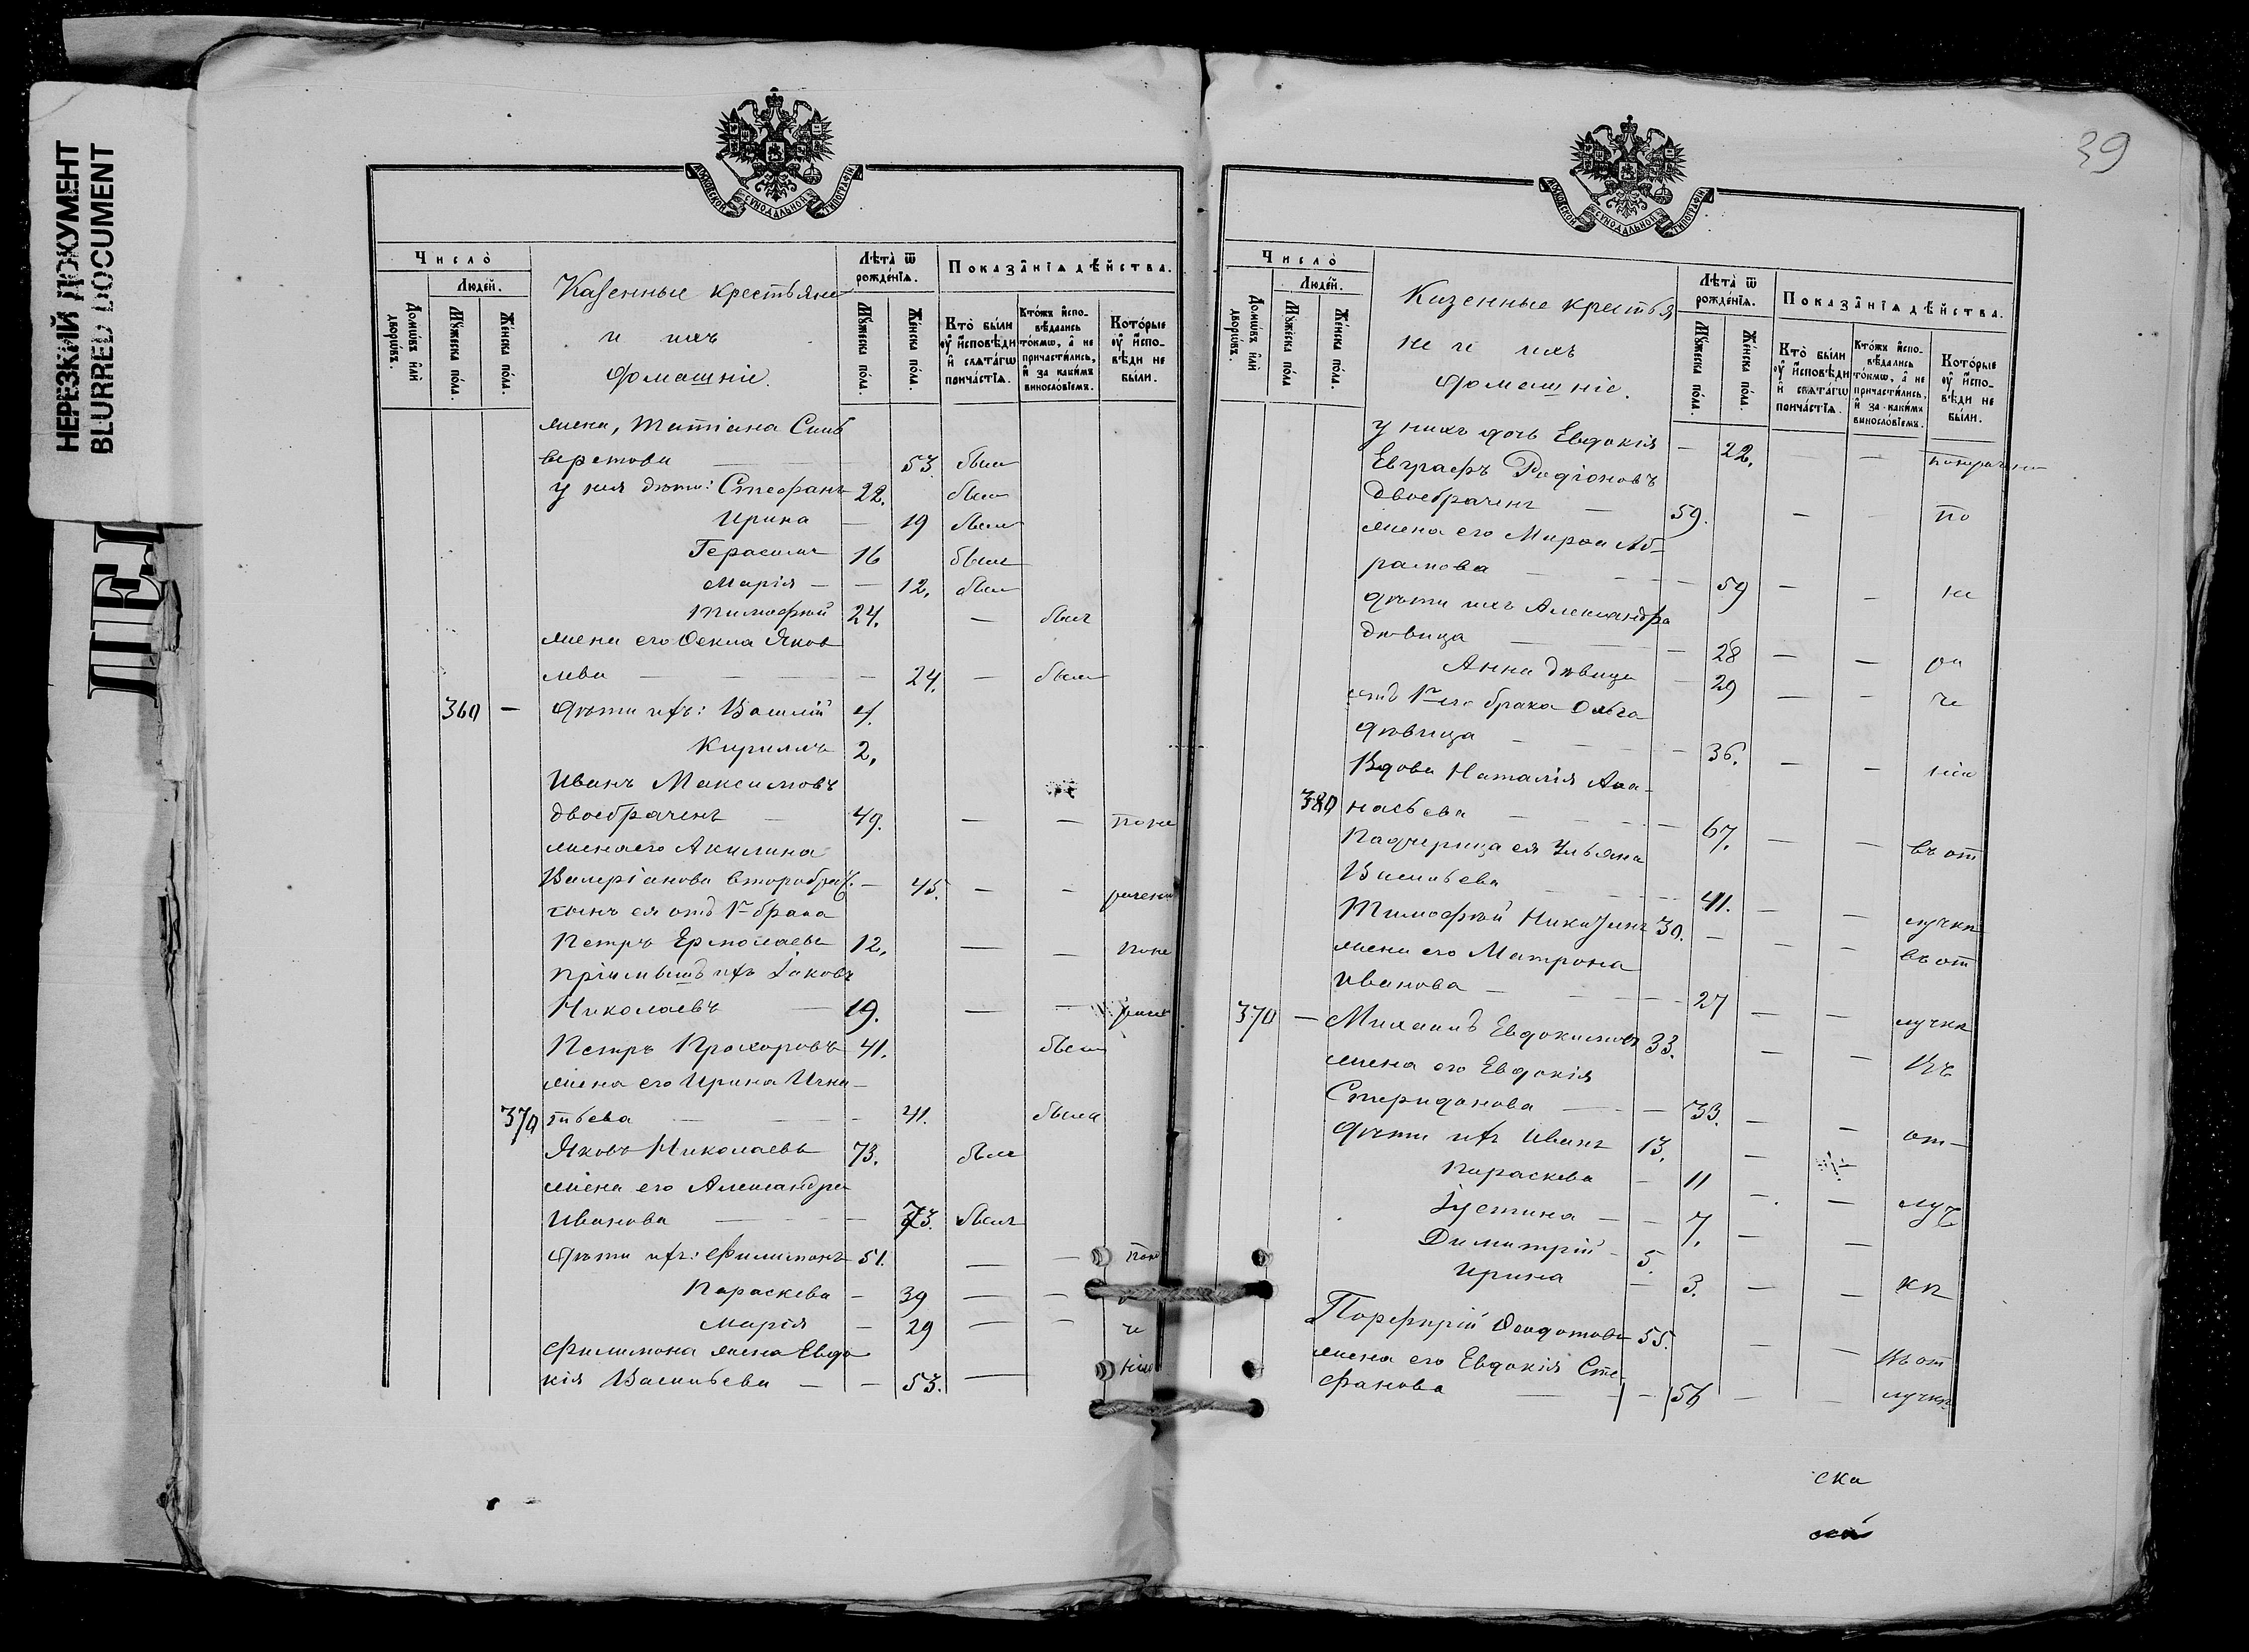 НЕРЕЗКИЙ ДОКУМЕНТ
BLURRED DOCUMENT
39
МОСКОВСКОЙ СУНОДАЛЬНОЙ ТИПОГРАФІИ
Число̀
Людей.
Домѡвъ и҆лѝ дворѡвъ.
Мꙋжеска по́ла.
Же́нска по́ла.
Казенные крестьяне
и ихъ
домашніе.
Лѣта̀ ѿ рожде́нїѧ.
Мꙋжеска по́ла.
Же́нска по́ла.
Показа̑нїѧ дѣ́йства.
Кто̀ бы́ли ᲂу҆ и҆́сповѣди и҆ свѧта́гѡ прича́стїѧ.
Кто́жъ и҆сповѣ́дались то́кмѡ, а҆ не причасти́лись, и҆ за каки́мъ винослов́їемъ.
Кото́рые ᲂу҆ и҆́сповѣди не бы́ли.
жена, Татіана Сильверстова — 53. была
у нея дѣти: Стефанъ 22. былъ
Ирина — 19 была
Герасимъ 16 былъ
Марія — — 12. была
Тимофей 24. — былъ
жена его Ѳекла Яков
лева — — — 24. — была
360 — Дѣти ихъ: Василій 4.
Кирилъ 2.
Иванъ Максимовъ
двоебраченъ — 49. — — по не
жена его Акилина
Валеріанова второбрач. — 45. — — рачен
сынъ ея отъ 1го брака
Петръ Ермолаевъ 12. — — по не
пріимышъ ихъ Іаковъ
Николаевъ — 19. — —
Петръ Прохоровъ 41. былъ
жена его Ирина Игна-
370 тьева — — — 41. была
Яковъ Николаевъ 73. былъ
жена его Александра
Иванова — — — 73. была
Дѣти ихъ: Филимонъ 51. — —
Параскева — 39 — —
Марія — 29 — — че
Филимона жена Евдо
кія Васильева — — 53. — нію
Число̀
Людей.
Домѡвъ и҆лѝ дворѡвъ.
Мꙋжеска по́ла
Же́нска по́ла.
Казенные крестья
не и ихъ
домашніе.
Лѣта̀ ѿ рожде́нїѧ.
Мꙋжеска по́ла.
Же́нска по́ла.
Показа̑нїѧ дѣ́йства.
Кто̀ бы́ли ᲂу҆ и҆́сповѣди и҆ свѧта́гѡ прича́стїѧ.
Кто́жъ и҆сповѣ́дались то́кмѡ, а҆ не причасти́лись, и҆ за каки́мъ винослов́їемъ.
Кото́рые ᲂу҆ и҆́сповѣди не бы́ли.
у нихъ дочь Евдокія — 22. — —
Евграфъ Родіоновъ
двоебраченъ — 59. — — по
жена его Марѳа Аб-
рамова — — — 59 — — не
дѣти ихъ Александра
дѣвица — — — 28 — — ра
Анна дѣвица — 29 — — че
отъ 1го его брака Ольга
дѣвица — — — 36. — — нію
Вдова Наталія Аѳа-
380 насьева — — — 67. — — въ от
Падчерица ея Ульяна
Васильева — — — 41. — — лучкѣ
Тимофей Никитинъ 30. — — — въ от
жена его Матрона
Иванова — — — 27 — — лучкѣ
370 — Михаилъ Евдокимовъ 33. — — Въ
жена его Евдокія
Спиридонова — — 33. — — от-
Дѣти ихъ Иванъ 13. — —
Параскева — 11 — — луч
Іустина — — 7. —
Димитрій — 5.
Ирина — 3. — — кѣ
Порфирій Ѳедотовъ 55. — — Въ от
жена его Евдокія Сте-
фанова — — 56 — — лучкѣ
ска